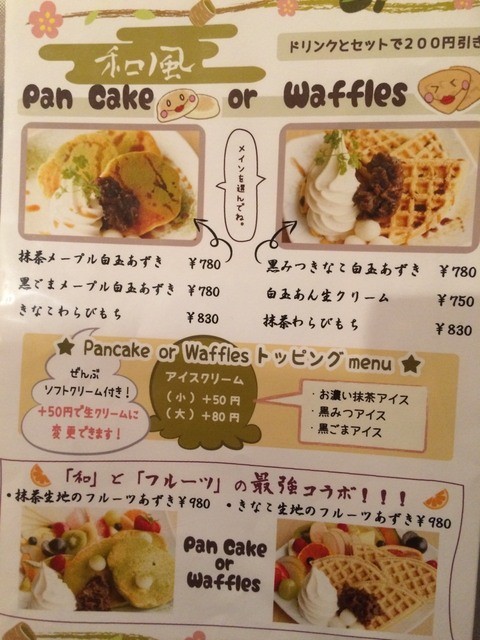 ドリンクとセットで200円引き
和風
Pan Cake or Waffles
メインを選んでね。
抹茶メープル白玉あずき ￥780
黒ごまメープル白玉あずき ￥780
きなこわらびもち ￥830
黒みつきなこ白玉あずき ￥780
白玉あん生クリーム ￥750
抹茶わらびもち ￥830
★ Pancake or Waffles トッピング menu ★
ぜんぶ
ソフトクリーム付き！
+50円で生クリームに
変更できます！
アイスクリーム
（小）+50円
（大）+80円
・お濃い抹茶アイス
・黒みつアイス
・黒ごまアイス
「和」と「フルーツ」の最強コラボ！！！
・抹茶生地のフルーツあずき￥980
・きなこ生地のフルーツあずき￥980
Pan Cake
or
Waffles